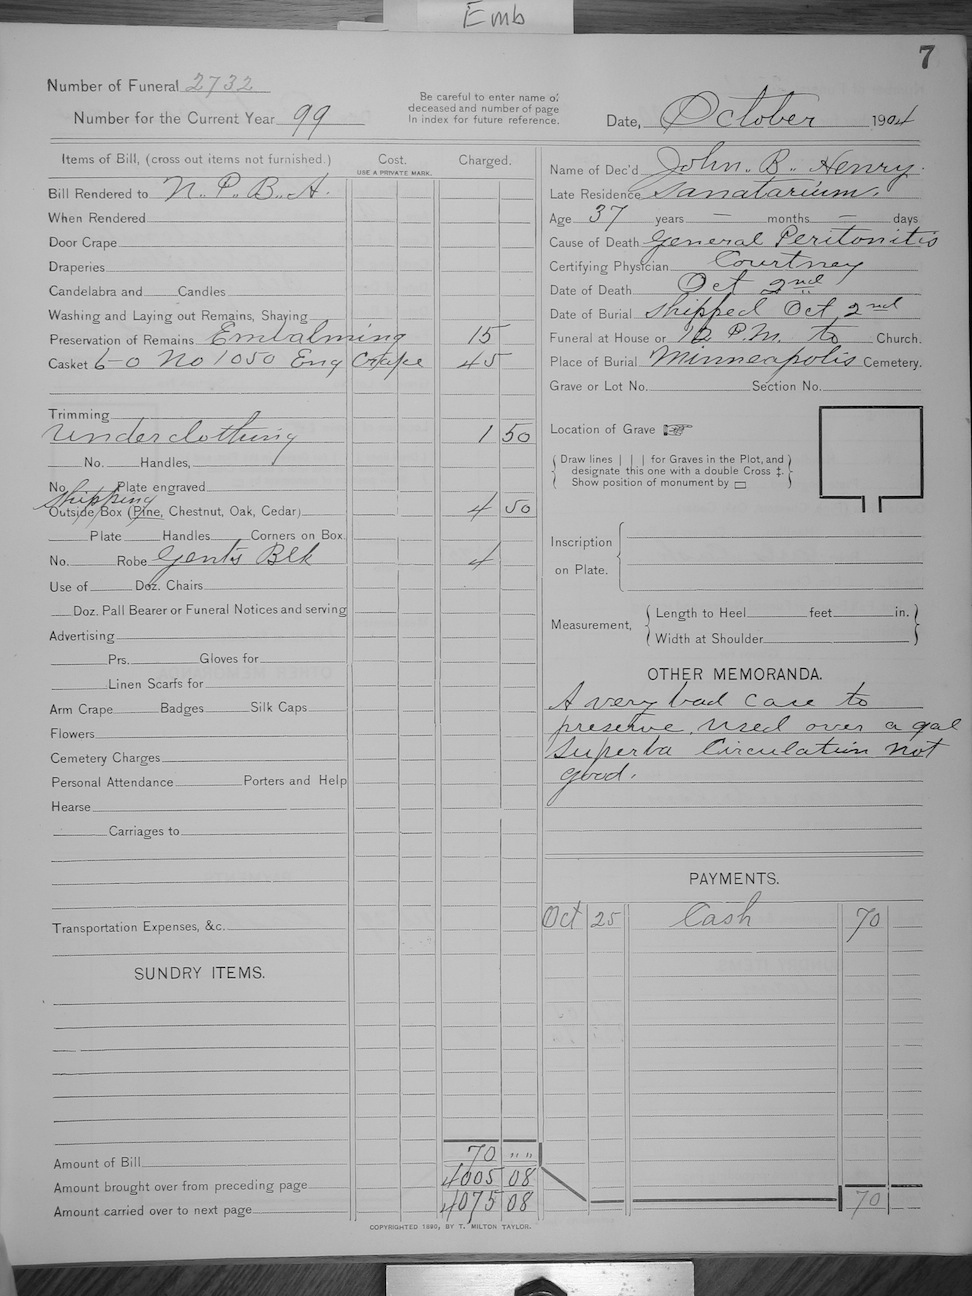 Emb
7
Number of Funeral 2732
Number for the Current Year 99
Be careful to enter name of
deceased and number of page
in index for future reference.
Date, October 1904
Items of Bill, (cross out items not furnished.)
Cost.
USE A PRIVATE MARK.
Charged.
Bill Rendered to N. P. B. A.
When Rendered
Door Crape
Draperies
Candelabra and Candles
Washing and Laying out Remains, Shaving
Preservation of Remains Embalming 15
Casket 6-0 No 1050 Eng Crape 45
Trimming
Underclothing 1 50
No. Handles,
No. Plate engraved
Shipping
Outside Box (Pine, Chestnut, Oak, Cedar) 4 50
Plate Handles Corners on Box
No. Robe Gents Blk 4
Use of Doz. Chairs
Doz. Pall Bearer or Funeral Notices and serving
Advertising
Prs. Gloves for
Linen Scarfs for
Arm Crape Badges Silk Caps
Flowers
Cemetery Charges
Personal Attendance Porters and Help
Hearse
Carriages to
Transportation Expenses, &c.
SUNDRY ITEMS.
Amount of Bill 70 " "
Amount brought over from preceding page 4005 08
Amount carried over to next page 4075 08
Name of Dec'd John. B. Henry.
Late Residence Sanatarium.
Age 37 years — months — days
Cause of Death General Peritonitis
Certifying Physician Courtney
Date of Death Oct 2nd
Date of Burial Shipped Oct 2nd
Funeral at House or 12 P.M. to Church.
Place of Burial Minneapolis Cemetery.
Grave or Lot No. Section No.
Location of Grave ☞
Draw lines | | | for Graves in the Plot, and
designate this one with a double Cross ‡.
Show position of monument by ▭
Inscription
on Plate.
Measurement,
Length to Heel feet in.
Width at Shoulder
OTHER MEMORANDA.
A very bad case to
preserve. Used over a gal
Superba Circulation not
good.
PAYMENTS.
Oct 25 Cash 70
70
COPYRIGHTED 1890, BY T. MILTON TAYLOR.